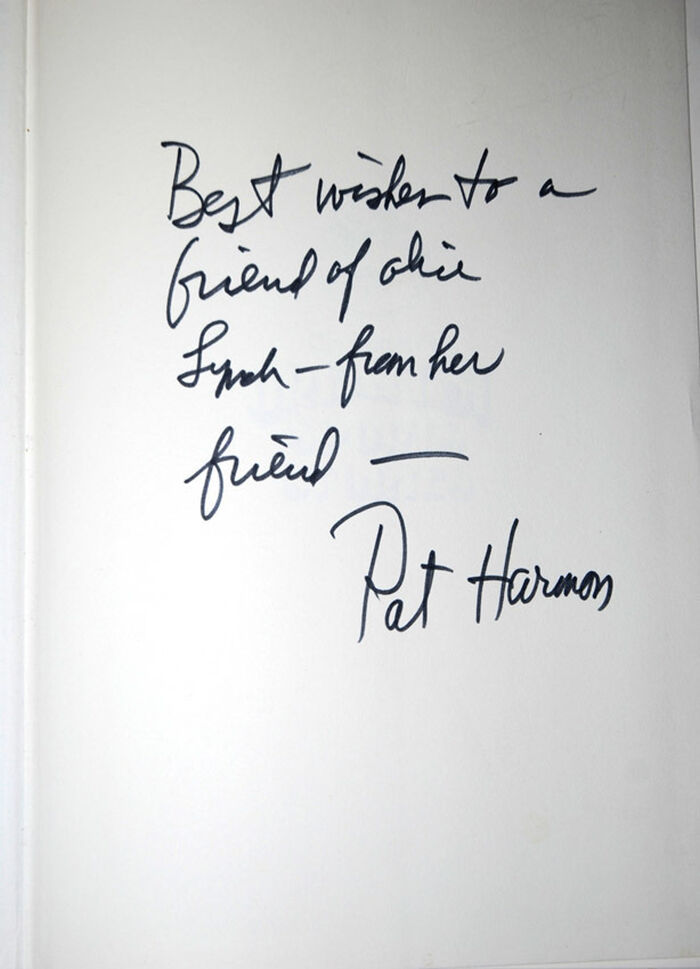 Best wishes to a
friend of Alice
Lynch — from her
friend —
Pat Harmon